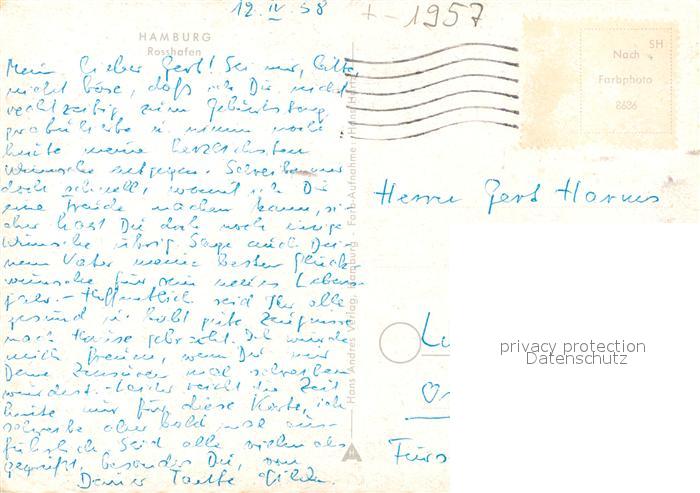 12. IV 58
+-1957
HAMBURG
Rosshafen
Mein lieber Gert! Sei mir, bitte,
nicht böse, daß ich Dir nicht
rechtzeitig zum Geburtstag
u. nimm noch
heute meine herzlichsten
Wünsche entgegen. Schreibe mir
doch schnell, womit ich Dir
eine Freude machen kann, si-
cher hast Du doch noch einige
Wünsche übrig. Sage auch Dei-
nem Vater meine besten Glück-
wünsche für sein neues Lebens-
jahr. - Hoffentlich seid Ihr alle
gesund u. habt gute Zeugnisse
nach Hause gebracht. Ich würde
mich freuen, wenn Du mir
Deine Zensuren mal schreiben
würdest. - Leider reicht die Zeit
heute nur für diese Karte, ich
schreibe aber bald mal aus-
führlich. Seid alle vielmals
gegrüßt, besonders Du, von
Deiner Tante
Hans Andres Verlag, Hamburg - Farb-Aufnahme: Hans Hartz
SH
Nach
Farbphoto
8686
Herrn Gert Harms
Lu
Fürs
privacy protection
Datenschutz